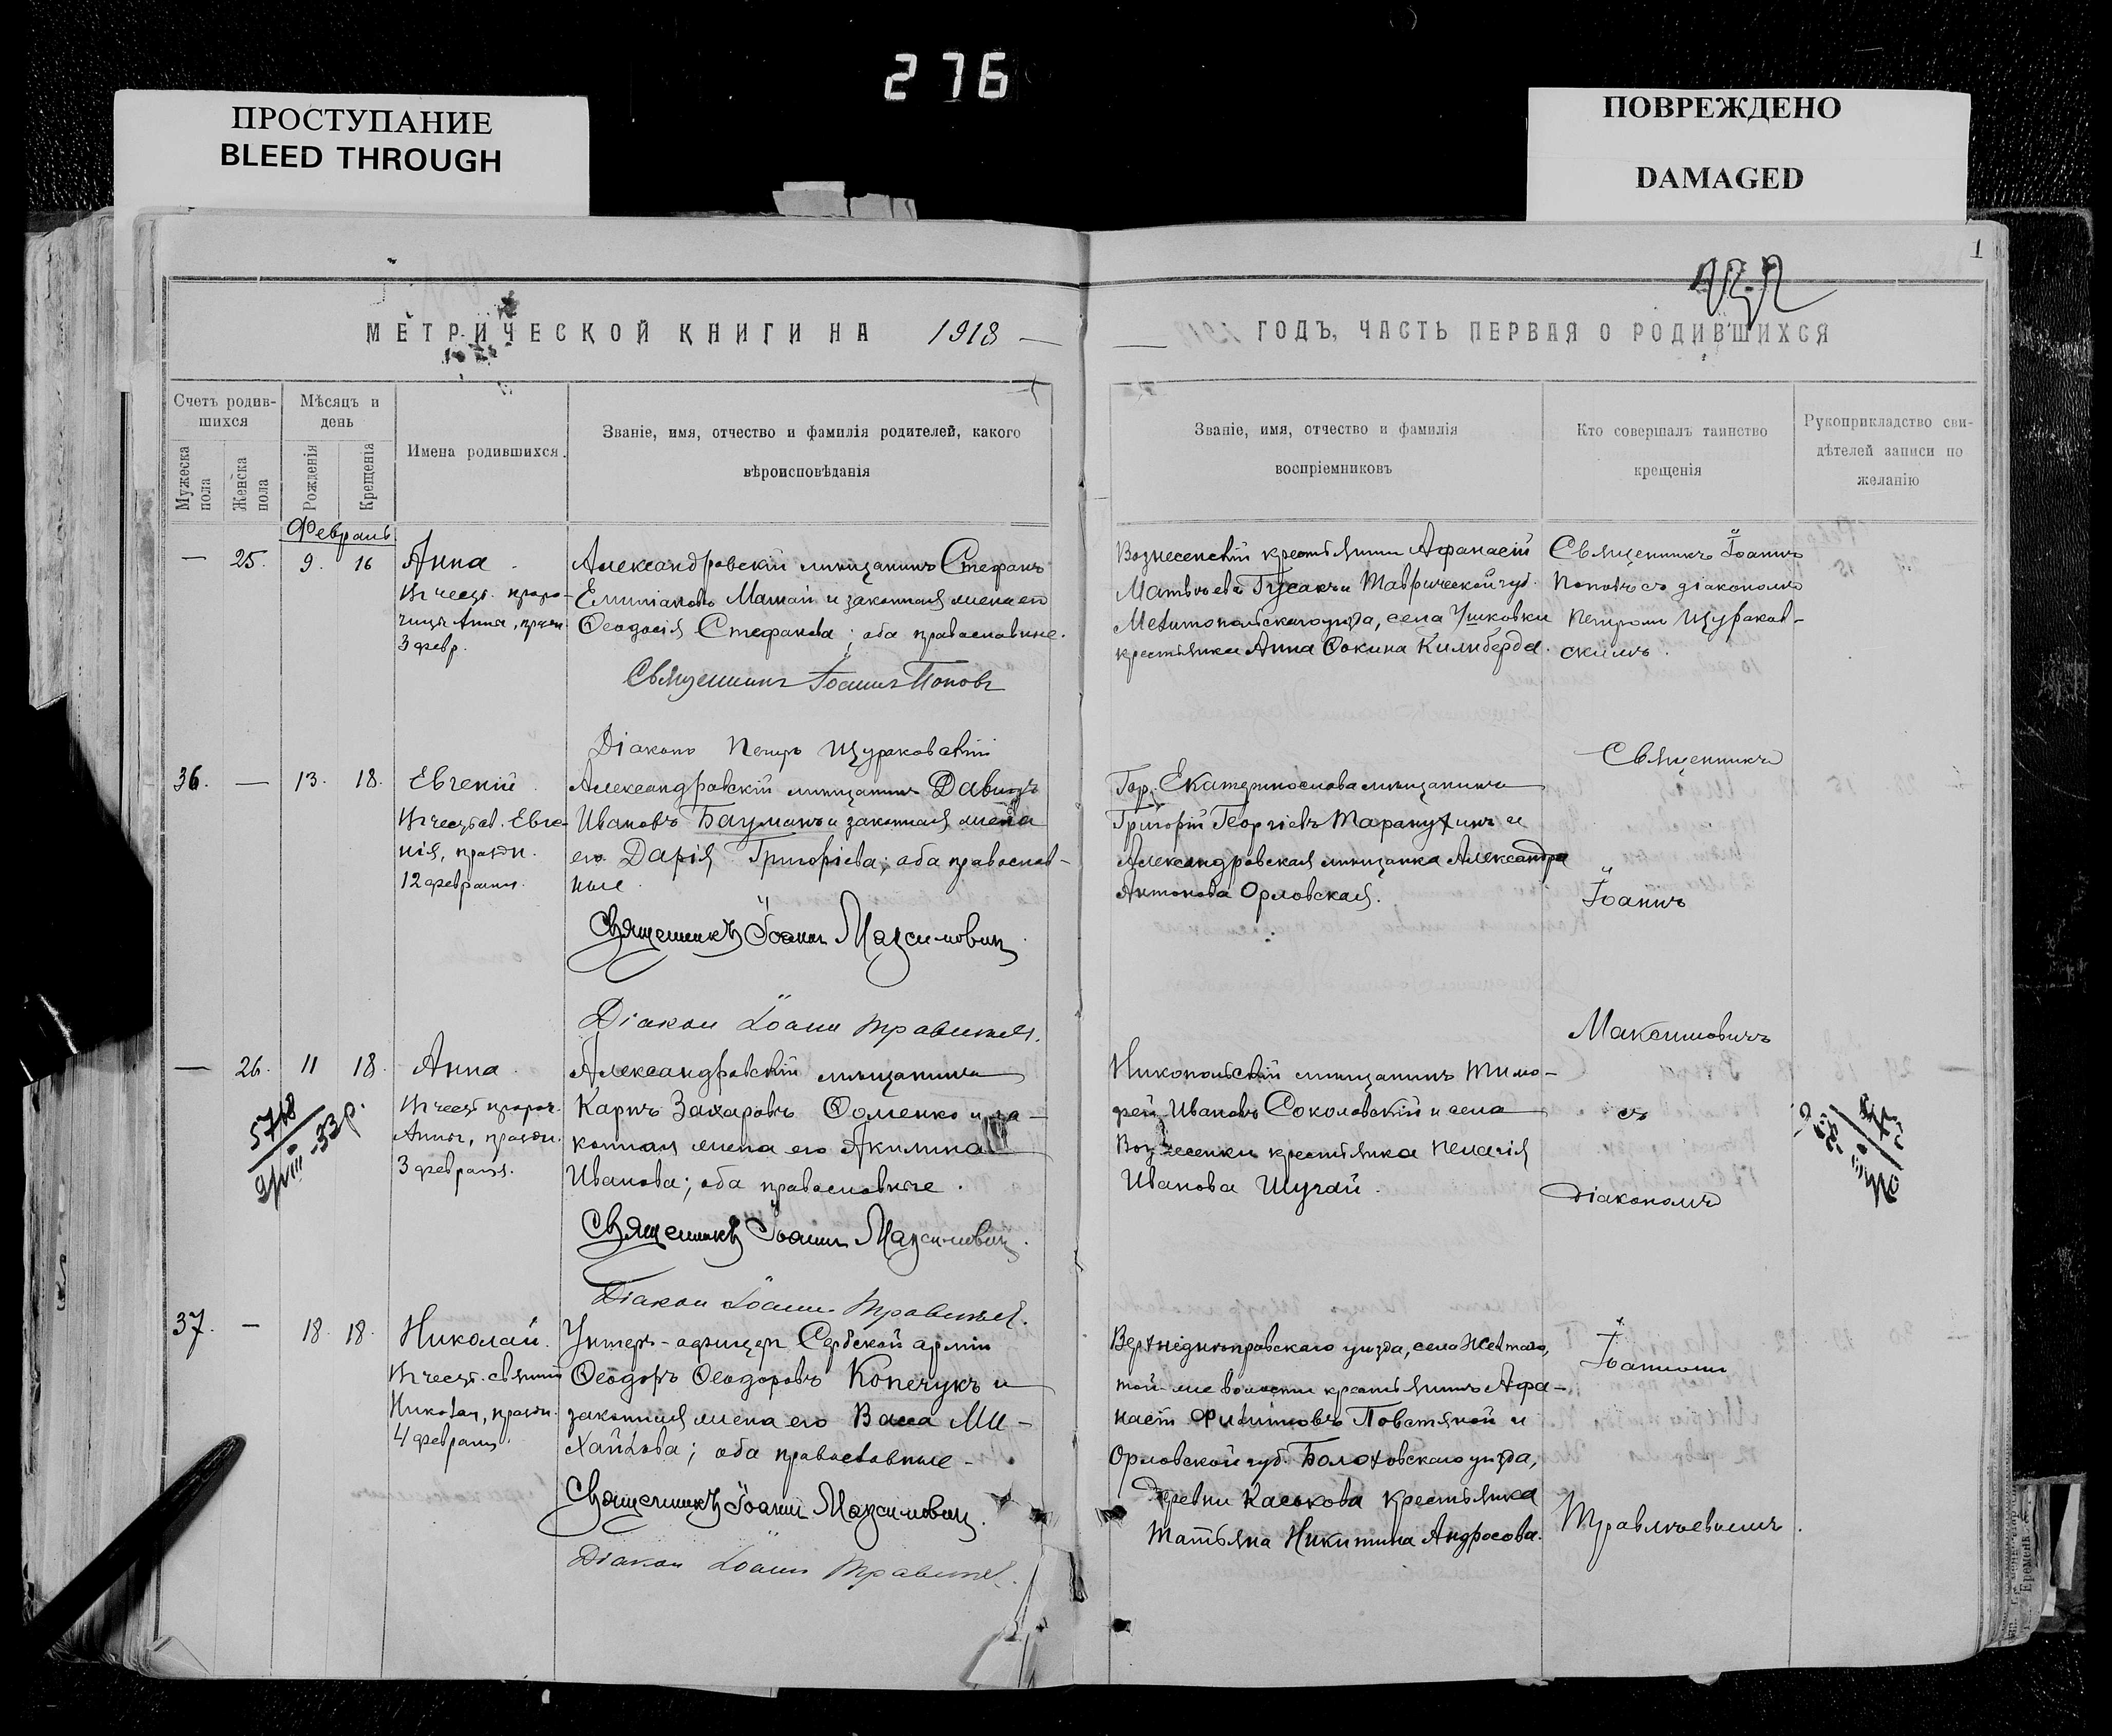 276
ПРОСТУПАНИЕ
BLEED THROUGH
ПОВРЕЖДЕНО
DAMAGED
1
МЕТРИЧЕСКОЙ КНИГИ НА 1918
ГОДЪ, ЧАСТЬ ПЕРВАЯ О РОДИВШИХСЯ
Счетъ родив-
шихся
Мужеска
пола
Женска
пола
Мѣсяцъ и
день
Рожденія
Крещенія
Имена родившихся.
Званіе, имя, отчество и фамилія родителей, какого
вѣроисповѣданія
Званіе, имя, отчество и фамилія
воспріемниковъ
Кто совершалъ таинство
крещенія
Рукоприкладство сви-
дѣтелей записи по
желанію
Февраль
— 25. 9. 16
Анна
Въ честь проро-
чицы Анны, празн.
3 февр.
Александровскій мѣщанинъ Стефанъ
Емиліановъ Мамай и законная жена его
Ѳеодосія Стефанова; оба православные.
Священникъ Іоаннъ Поповъ
Діаконъ Петръ Щураковскій
Вознесенскій крестьянинъ Афанасій
Матвѣевъ Гусакъ и Таврической губ.
Мелитопольскаго уѣзда, села Ушковки
крестьянка Анна Ѳокина Килиберда.
Священникъ Іоаннъ
Поповъ съ діакономъ
Петромъ Щураков-
скимъ.
36. — 13. 18.
Евгеній
Въ честь св. Евге-
нія, праздн.
12 февраля.
Александровскій мѣщанинъ Давидъ
Ивановъ Бауманъ и законная жена
его Дарія Григоріева; оба православ-
ные.
Священникъ Іоаннъ Максимовичъ
Діаконъ Іоаннъ
Гор. Екатеринослава мѣщанинъ
Григорій Георгіевъ Таранухинъ и
Александровская мѣщанка Александра
Антонова Орловская.
Священникъ
Іоаннъ
Максимовичъ
— 26. 11 18.
Анна
Въ честь пророч.
Анны, праздн.
3 февраля.
Александровскій мѣщанинъ
Карпъ Захаровъ Ѳоменко и за-
конная жена его Акилина
Иванова; оба православные.
Священникъ Іоаннъ Максимовичъ.
Діаконъ Іоаннъ
Никопольскій мѣщанинъ Тимо-
фей Ивановъ Соколовскій и села
Вознесенки крестьянка Пелагія
Иванова Шугай.
съ
діакономъ
37. — 18. 18.
Николай.
Въ честь святит.
Николая, праздн.
4 февраля.
Унтеръ-офицеръ Сербской арміи
Ѳеодоръ Ѳеодоровъ Копечукъ и
законная жена его Васса Ми-
хайлова; оба православные.
Священникъ Іоаннъ Максимовичъ.
Діаконъ Іоаннъ
Верхнеднѣпровскаго уѣзда, села Желтаго,
той-же волости крестьянинъ Афа-
насій Филипповъ Повстяной и
Орловской губ. Болховскаго уѣзда,
деревни Каськова крестьянка
Татьяна Никитина Андросова.
Іоанномъ